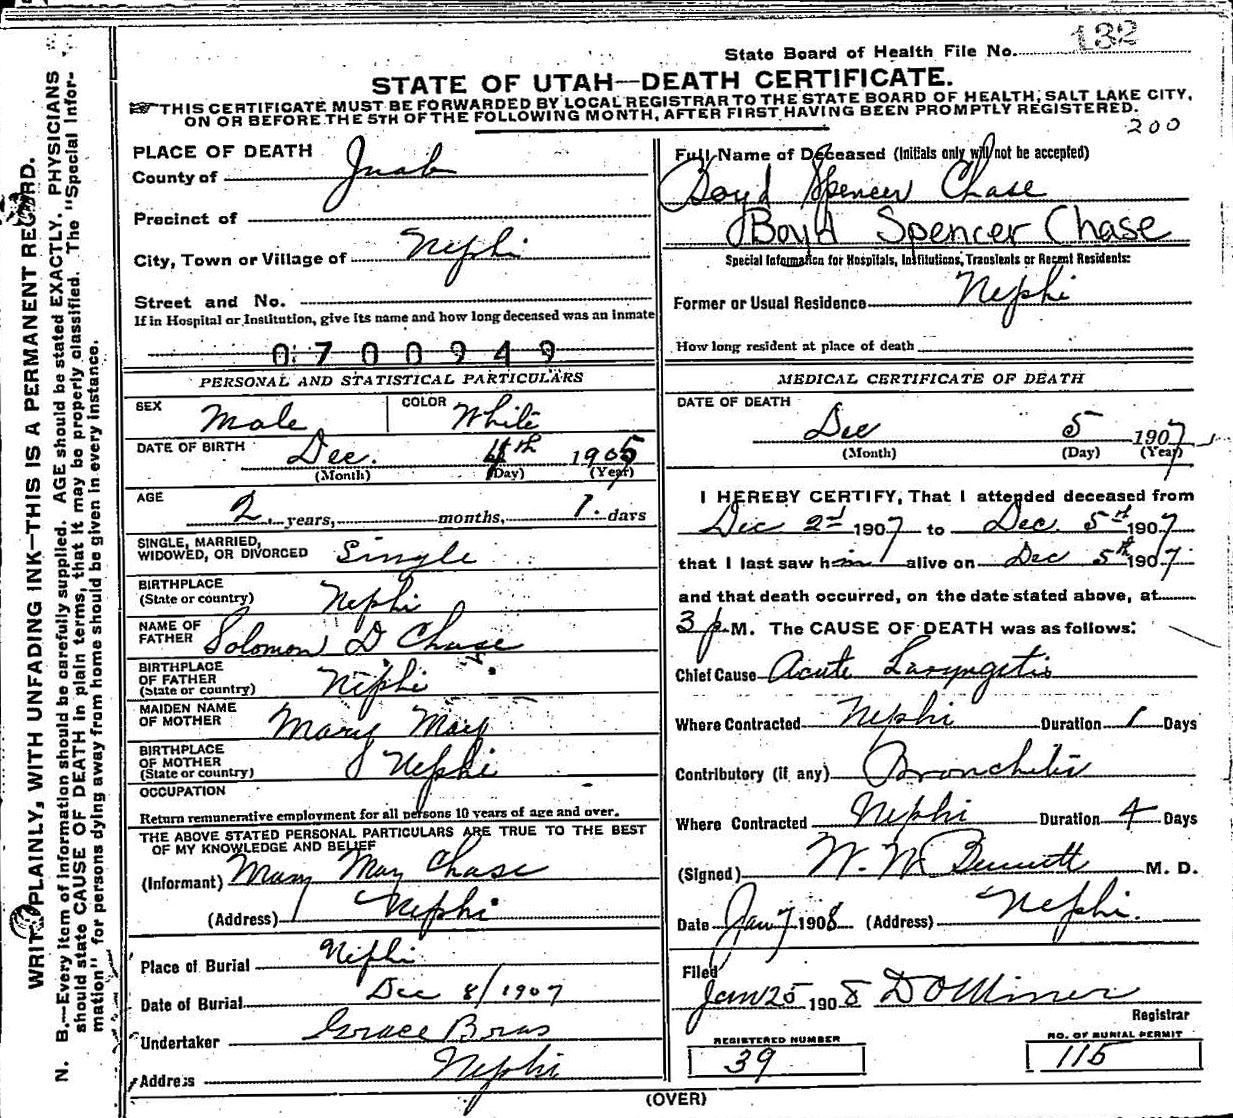 132
State Board of Health File No.
STATE OF UTAH—DEATH CERTIFICATE.
THIS CERTIFICATE MUST BE FORWARDED BY LOCAL REGISTRAR TO THE STATE BOARD OF HEALTH, SALT LAKE CITY,
ON OR BEFORE THE 5TH OF THE FOLLOWING MONTH, AFTER FIRST HAVING BEEN PROMPTLY REGISTERED.
200
WRITE PLAINLY, WITH UNFADING INK—THIS IS A PERMANENT RECORD.
N. B.—Every item of information should be carefully supplied. AGE should be stated EXACTLY. PHYSICIANS
should state CAUSE OF DEATH in plain terms, that it may be properly classified. The "Special Infor-
mation" for persons dying away from home should be given in every instance.
PLACE OF DEATH
County of Juab
Precinct of
City, Town or Village of Nephi
Street and No.
If in Hospital or Institution, give its name and how long deceased was an inmate
0700949
PERSONAL AND STATISTICAL PARTICULARS
SEX Male COLOR White
DATE OF BIRTH Dec. 4th 1905
(Month) (Day) (Year)
AGE
2 years, months, 1 days
SINGLE, MARRIED,
WIDOWED, OR DIVORCED Single
BIRTHPLACE
(State or country) Nephi
NAME OF
FATHER Solomon D Chase
BIRTHPLACE
OF FATHER
(State or country) Nephi
MAIDEN NAME
OF MOTHER Mary May
BIRTHPLACE
OF MOTHER
(State or country) Nephi
OCCUPATION
Return remunerative employment for all persons 10 years of age and over.
THE ABOVE STATED PERSONAL PARTICULARS ARE TRUE TO THE BEST
OF MY KNOWLEDGE AND BELIEF
(Informant) Mary May Chase
(Address) Nephi
Place of Burial Nephi
Date of Burial Dec 8/1907
Undertaker Grace Bros
Address Nephi
Full Name of Deceased (Initials only will not be accepted)
Boyd Spencer Chase
Boyd Spencer Chase
Special Information for Hospitals, Institutions, Transients or Recent Residents:
Former or Usual Residence Nephi
How long resident at place of death
MEDICAL CERTIFICATE OF DEATH
DATE OF DEATH
Dec 5 1907
(Month) (Day) (Year)
I HEREBY CERTIFY, That I attended deceased from
Dec 2d 1907 to Dec. 5th 1907
that I last saw him alive on Dec 5th 1907
and that death occurred, on the date stated above, at
3 p M. The CAUSE OF DEATH was as follows:
Chief Cause Acute Laryngetis
Where Contracted Nephi Duration 1 Days
Contributory (if any) Bronchitis
Where Contracted Nephi Duration 4 Days
(Signed) W. M Bennett M. D.
Date Jan 7 1908 (Address) Nephi.
Filed
Jan 25 1908 D O Miner
Registrar
REGISTERED NUMBER
39
NO. OF BURIAL PERMIT
115
(OVER)